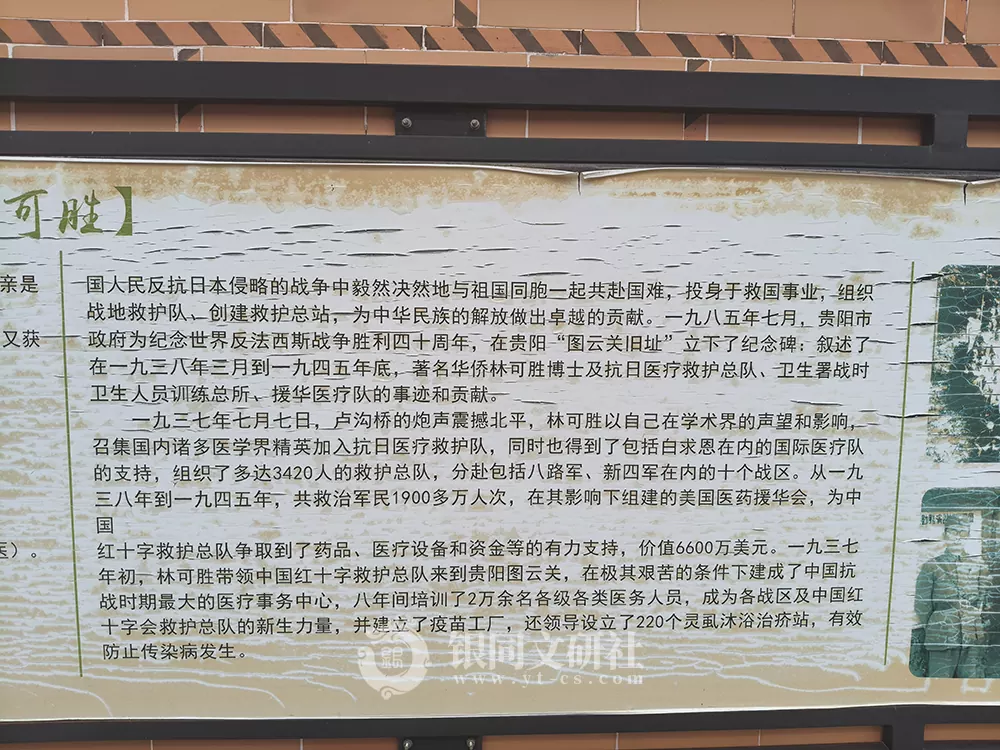 可胜】
亲是
又获
医）。
国人民反抗日本侵略的战争中毅然决然地与祖国同胞一起共赴国难，投身于救国事业，组织
战地救护队、创建救护总站，为中华民族的解放做出卓越的贡献。一九八五年七月，贵阳市
政府为纪念世界反法西斯战争胜利四十周年，在贵阳“图云关旧址”立下了纪念碑，叙述了
在一九三八年三月到一九四五年底，著名华侨林可胜博士及抗日医疗救护总队、卫生署战时
卫生人员训练总所、援华医疗队的事迹和贡献。
一九三七年七月七日，卢沟桥的炮声震撼北平，林可胜以自己在学术界的声望和影响，
召集国内诸多医学界精英加入抗日医疗救护队，同时也得到了包括白求恩在内的国际医疗队
的支持，组织了多达3420人的救护总队，分赴包括八路军、新四军在内的十个战区。从一九
三八年到一九四五年，共救治军民1900多万人次，在其影响下组建的美国医药援华会，为中
国
红十字救护总队争取到了药品、医疗设备和资金等的有力支持，价值6600万美元。一九三七
年初，林可胜带领中国红十字救护总队来到贵阳图云关，在极其艰苦的条件下建成了中国抗
战时期最大的医疗事务中心，八年间培训了2万余名各级各类医务人员，成为各战区及中国红
十字会救护总队的新生力量，并建立了疫苗工厂，还领导设立了220个灵虱沐浴治疥站，有效
防止传染病发生。
银同文研社
www.yt-cs.com